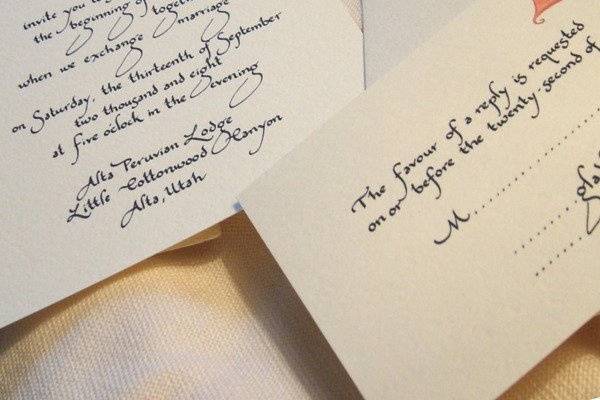 invite you to
the beginning of
when we exchange marriage
on Saturday, the thirteenth of September
two thousand and eight
at five o'clock in the evening
Alta Peruvian Lodge
Little Cottonwood Canyon
Alta, Utah
The favour of a reply is requested
on or before the twenty-second of
M